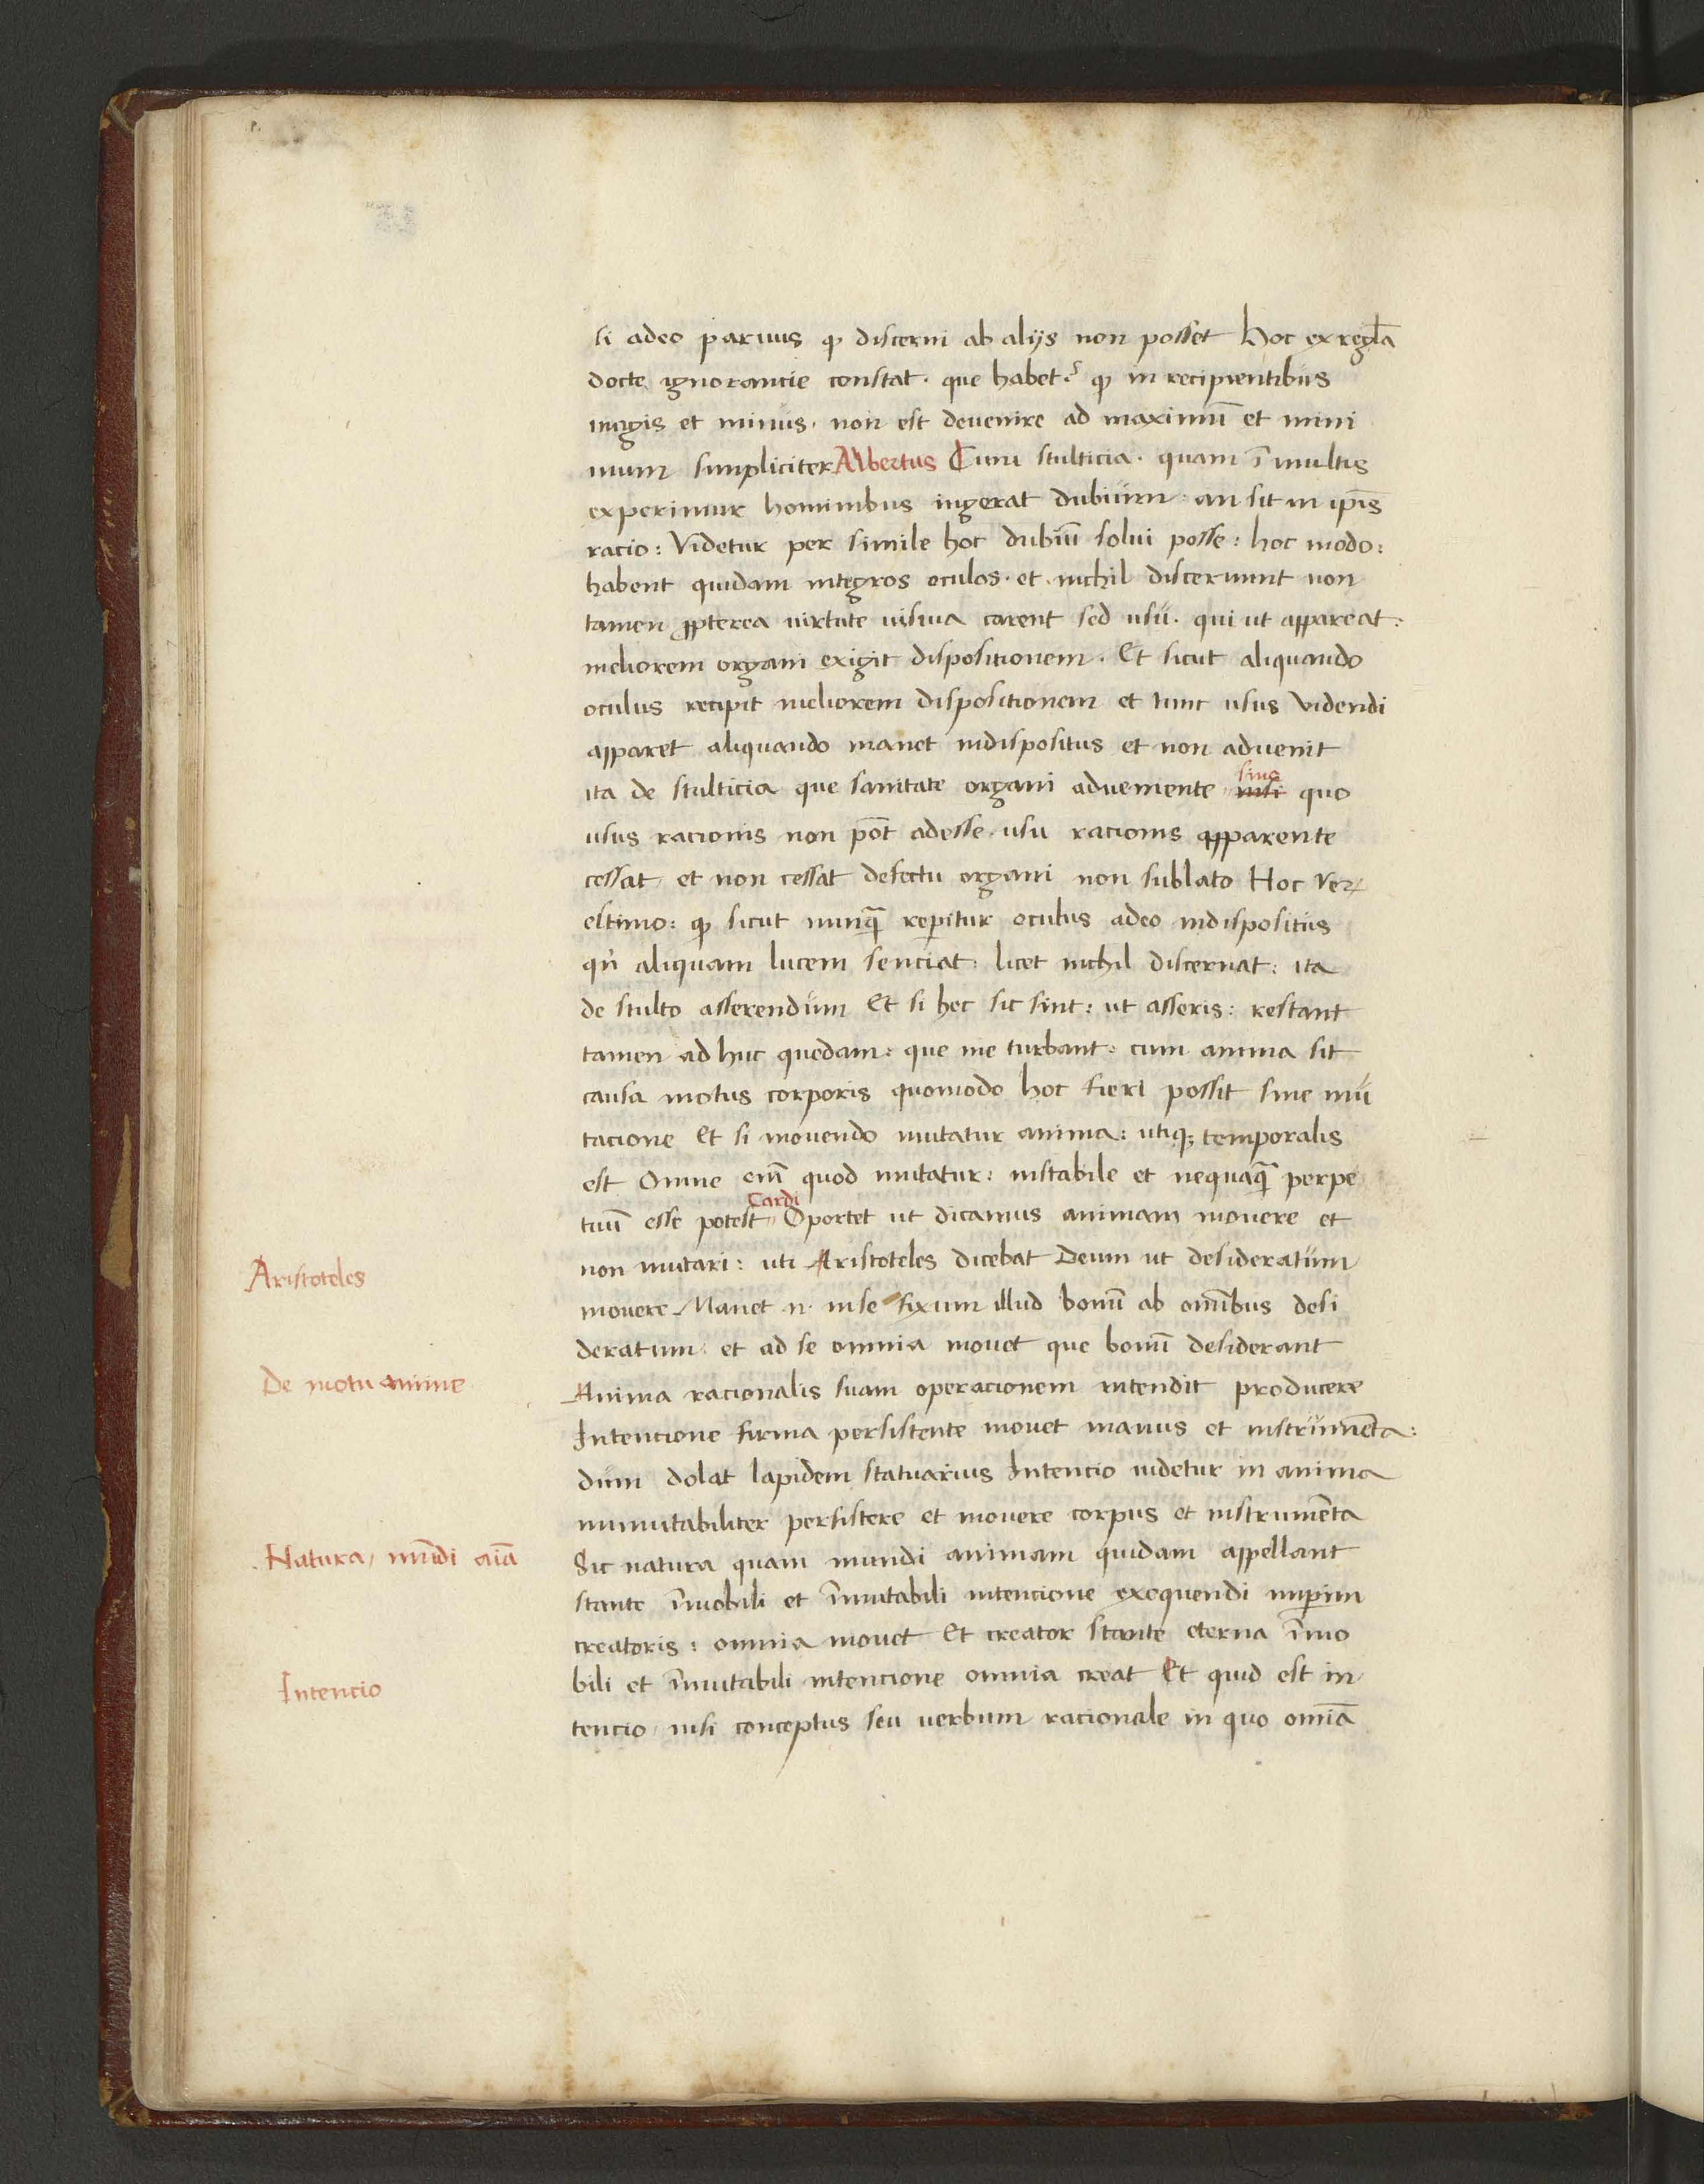 si adeo paruus ꝙ discerni ab aliis non posset Hoc ex regl̃a
docte ignorancie constat · que habet · ꝙ in recipientibus
magis et minus · non est deuenire ad maximũ et mini
mum simpliciter Albertus Cum stulticia · quam ĩ multis
experimur hominibus ingerat dubium : an sit in ip̃is
racio : Videtur per simile hoc dubiũ solui posse : hoc modo :
habent quidam integros oculos · et nichil discernunt non
tamen ꝓpterea uirtute uisiua carent sed usu · qui ut appareat :
meliorem organi exigit dispositionem · Et sicut aliquando
oculus recipit meliorem dispositionem et tunc usus videndi
apparet aliquando manet indispositus et non aduenit
sine
ita de stulticia que sanitate organi adueniente nisi quo
usus racionis non põt adesse · usu racionis apparente
cessat et non cessat defectu organi non sublato Hoc verꝝ
estimo : ꝙ sicut nunq̃ reperitur oculus adeo indispositus
qn̄ aliquam lucem senciat : licet nichil discernat : ita
de stulto asserendum Et si hec sic sint : ut asseris : restant
tamen ad huc quedam : que me turbant : cum anima sit
causa motus corporis quomodo hoc fieri possit sine mu
tacione Et si mouendo mutatur anima : utiqꝫ temporalis
est Omne em̃ quod mutatur : instabile et nequaq̃ perpe
Cardi
tuũ esse potest Oportet ut dicamus animam mouere et
non mutari : uti Aristoteles dicebat Deum ut desideratum
Aristoteles
mouere Manet n · in se fixum illud bonũ ab om̃ibus desi
deratum et ad se omnia mouet que bonũ desiderant
De motu anime
Anima racionalis suam operacionem intendit producere
Intencione firma persistente mouet manus et instrumẽta :
dum dolat lapidem statuarius Intencio uidetur in anima
inmutabiliter persistere et mouere corpus et instrumẽta
Natura , mũdi aĩa
Sic natura quam mundi animam quidam appellant
stante ĩmobili et ĩmutabili intencione exequendi imperium
creatoris : omnia mouet Et creator stante eterna ĩmo
bili et ĩmutabili intencione omnia creat Et quid est in
Intencio
tencio nisi conceptus seu uerbum racionale in quo omĩa